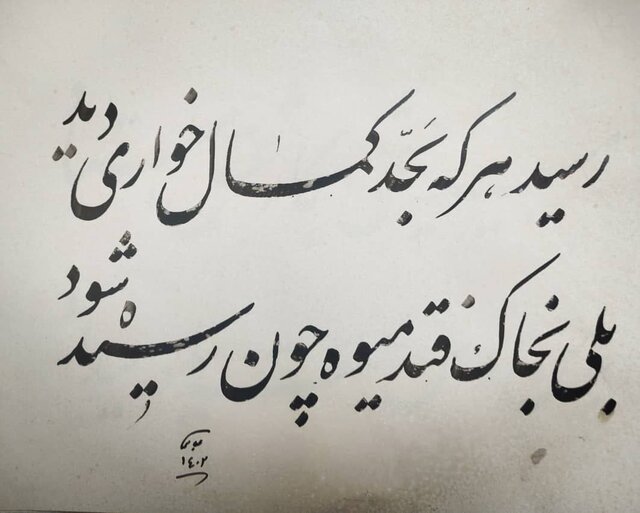 رسید هر که بحدّ کمال خواری دید
بلی بخاک فتد میوه چون رسیده شود
۱۴۰۲